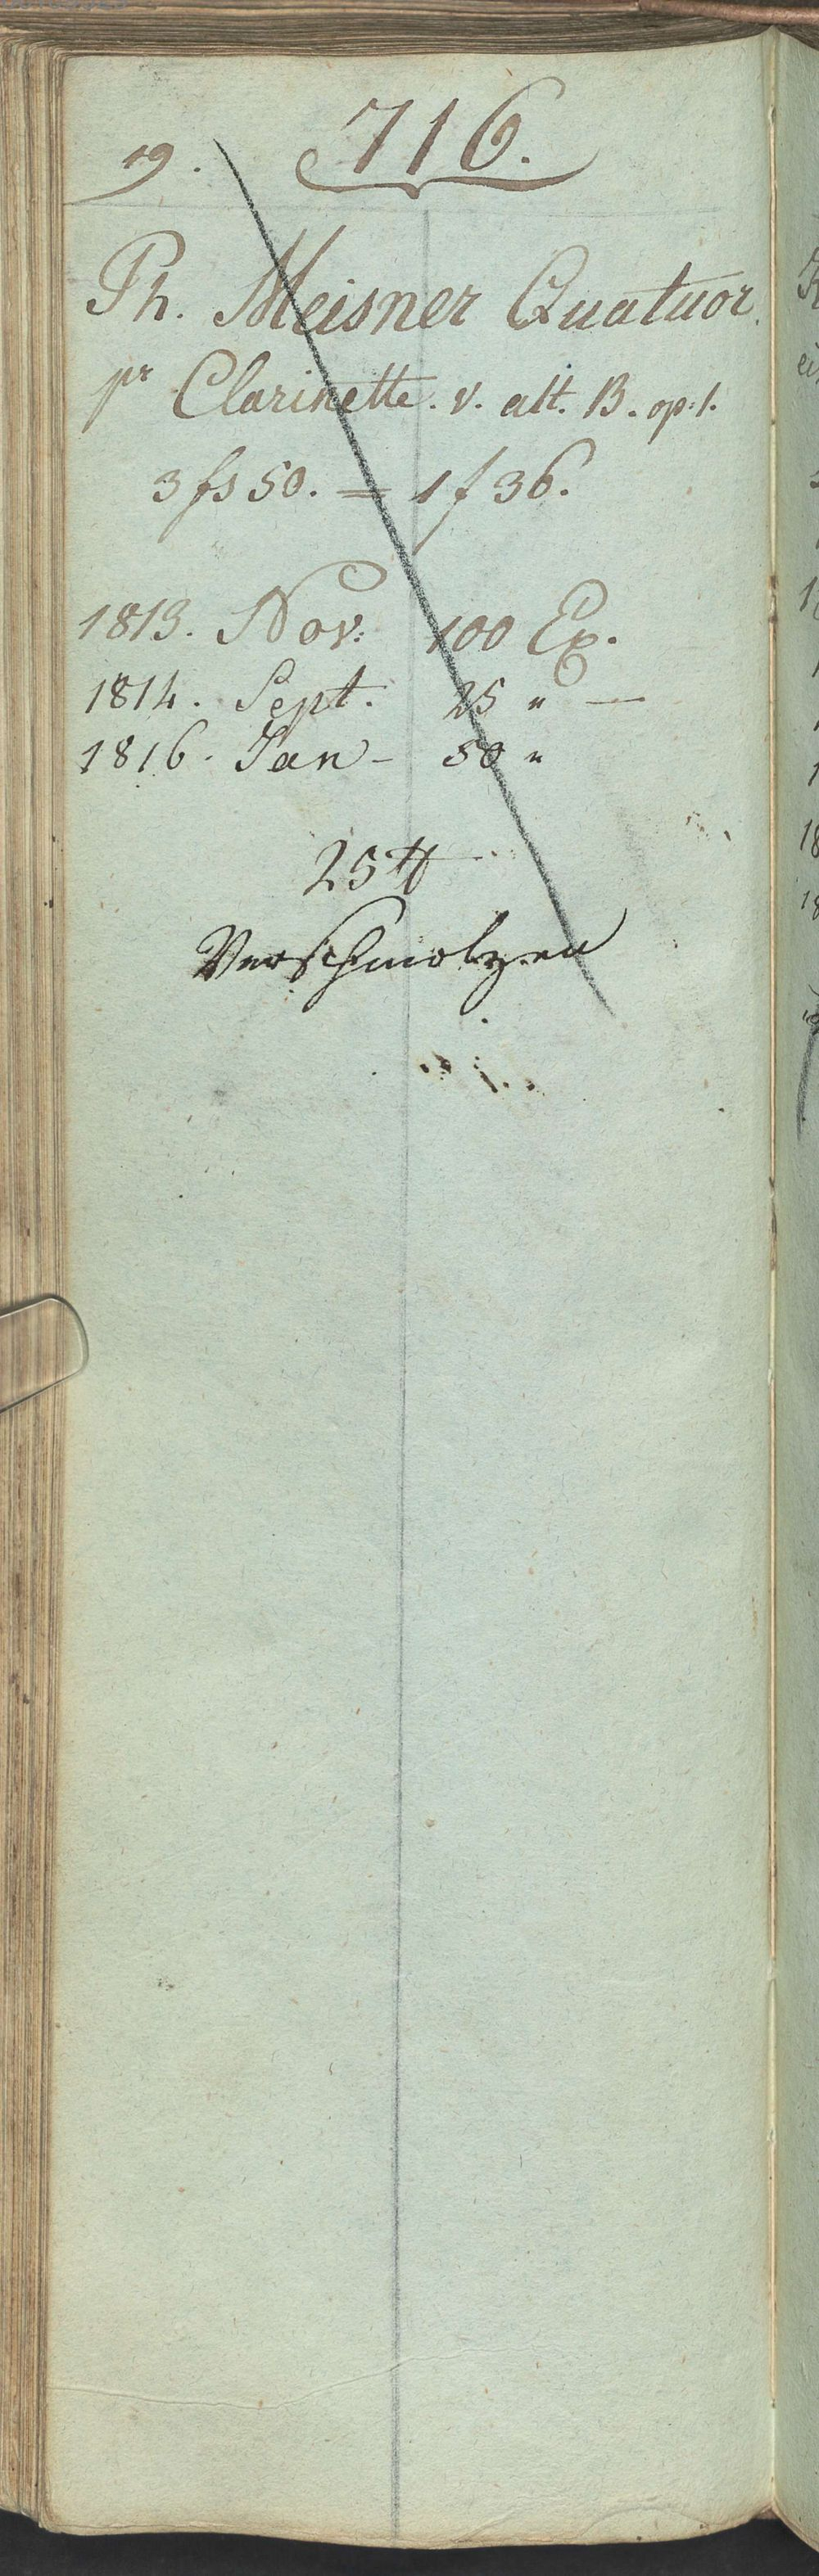 19. 716.
Ph. Meisner Quatuor.
pr Clarinette. v. alt. B. op: 1.
3 fs 50. = 1 f 36.
1813. Nov: 100 Ex.
1814. Sept. 25 " —
1816. Jan - 50 "
25 ℔
Verschmolzen